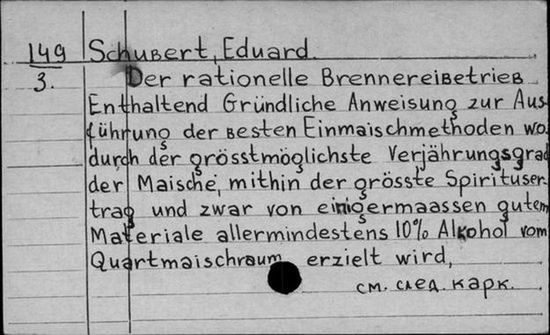 149
3.
Schubert, Eduard.
Der rationelle Brennereibetrieb
Enthaltend Gründliche Anweisung zur Aus-
führung der besten Einmaischmethoden wo-
durch der grösstmöglichste Verjährungsgrad
der Maische, mithin der grösste Spirituser-
trag und zwar von einigermaassen gutem
Materiale allermindestens 10% Alkohol vom
Quartmaischraum erzielt wird,
см. след. карк.